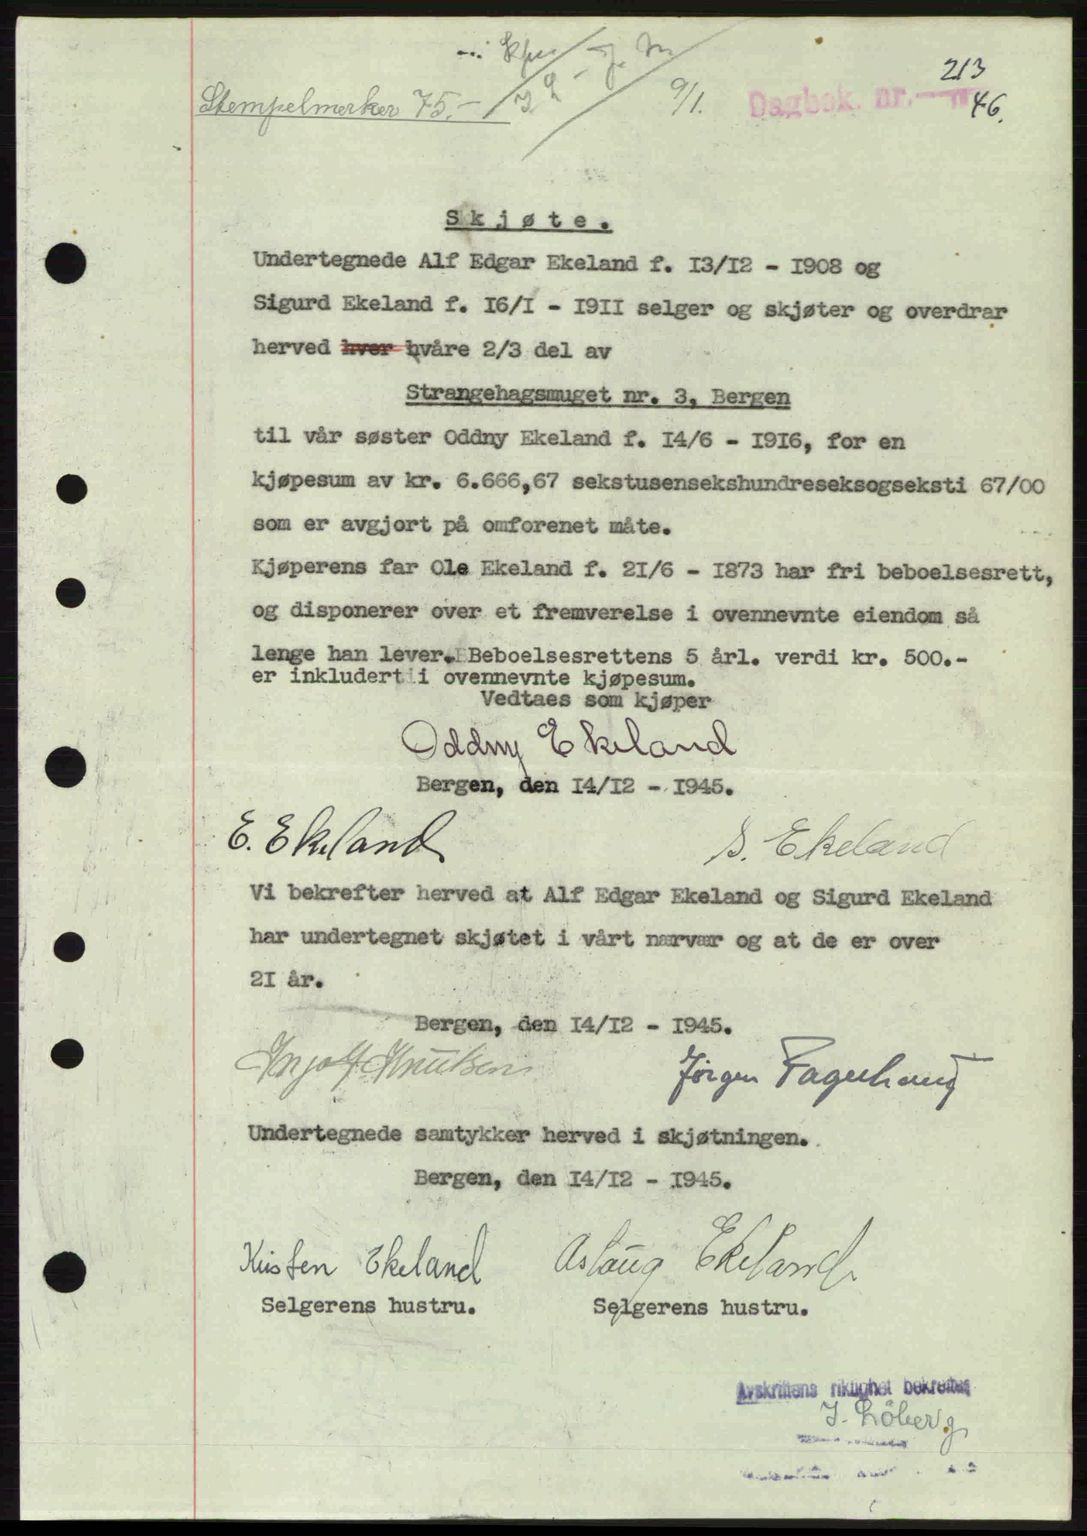 213
Stempelmerker 75.- 9/1. Dagbok. nr. 46.
Skjøte.
Undertegnede Alf Edgar Ekeland f. I3/I2 - I908 og
Sigurd Ekeland f. I6/I - I9II selger og skjøter og overdrar
herved hver våre 2/3 del av
Strangehagsmuget nr. 3, Bergen
til vår søster Oddny Ekeland f. I4/6 - I9I6, for en
kjøpesum av kr. 6.666,67 sekstusensekshundreseksogseksti 67/00
som er avgjort på omforenet måte.
Kjøperens far Ole Ekeland f. 2I/6 - I873 har fri beboelsesrett,
og disponerer over et fremverelse i ovennevnte eiendom så
lenge han lever. Beboelsesrettens 5 årl. verdi kr. 500.-
er inkludert i ovennevnte kjøpesum.
Vedtaes som kjøper
Oddny Ekeland
Bergen, den I4/I2 - I945.
E. Ekeland S. Ekeland
Vi bekrefter herved at Alf Edgar Ekeland og Sigurd Ekeland
har undertegnet skjøtet i vårt nærvær og at de er over
2I år.
Bergen, den I4/I2 - I945.
Ingolf Knutsen Jørgen Fagerhaug
Undertegnede samtykker herved i skjøtningen.
Bergen, den I4/I2 - I945.
Kirsten Ekeland Aslaug Ekeland
Selgerens hustru. Selgerens hustru.
Avskriftens riktighet bekreftes
J. Löberg